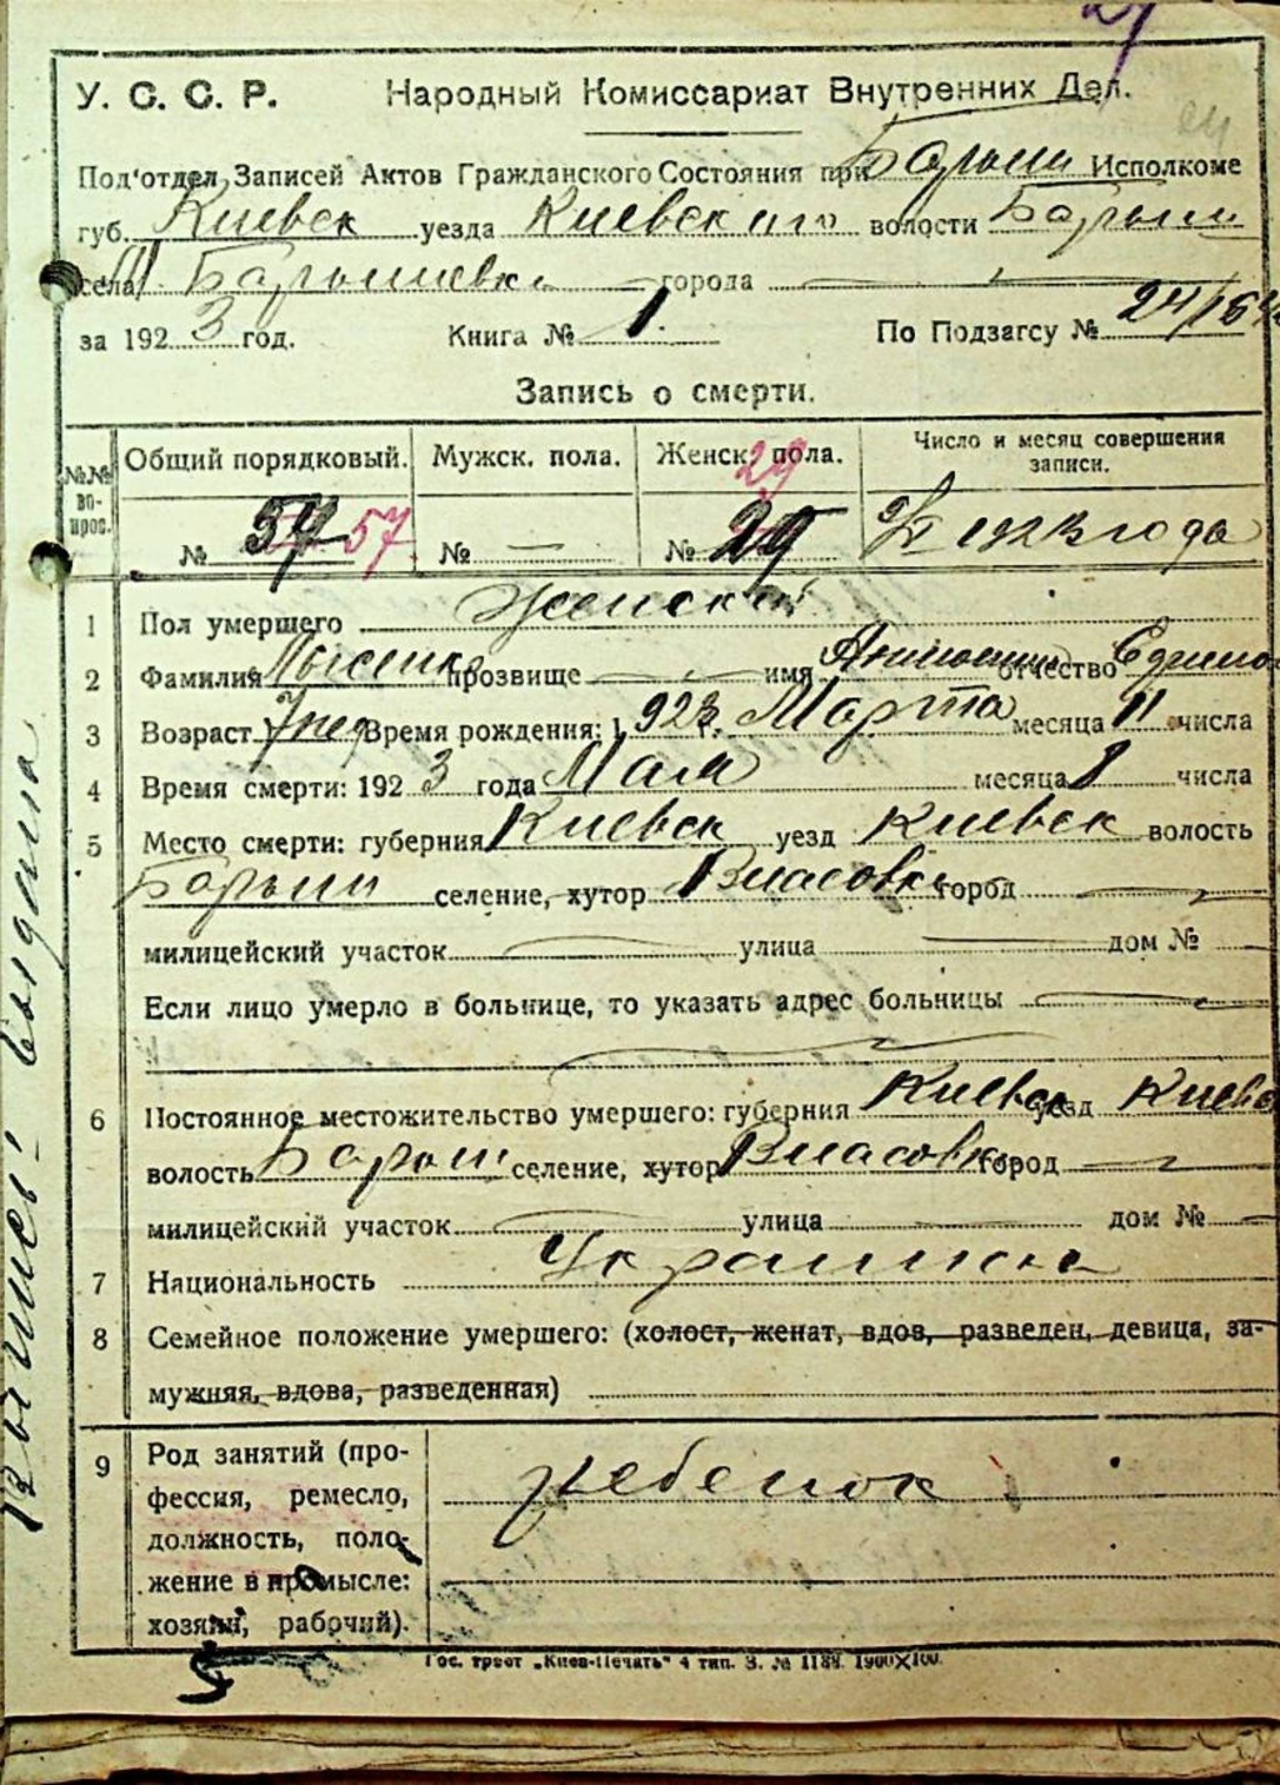 У. С. С. Р. Народный Комиссариат Внутренних Дел.
Под'отдел Записей Актов Гражданского Состояния при Барыши Исполкоме
губ. Киевск уезда Киевского волости Барыш
села Барышевки города —
за 1923 год. Книга № 1. По Подзагсу №
Запись о смерти.
№№ воирос. Общий порядковый. Мужск. пола. Женск. пола. Число и месяц совершения записи.
29
№ 57 57 № — № 29 1923 года
1 Пол умершего Женский
2 Фамилия Лысенко прозвище — имя отчество
3 Возраст 7 нед Время рождения: 1923 г. Марта месяца 11 числа
4 Время смерти: 1923 года Мая месяца 8 числа
5 Место смерти: губерния Киевск уезд Киевск волость
Барыш селение, хутор Власовка город —
милицейский участок — улица — дом № —
Если лицо умерло в больнице, то указать адрес больницы —
6 Постоянное местожительство умершего: губерния Киевск уезд Киевс
волость Барыш селение, хутор Власовка город —
милицейский участок — улица — дом № —
7 Национальность Украинка
8 Семейное положение умершего: (холост, женат, вдов, разведен, девица, за-
мужняя, вдова, разведенная)
9 Род занятий (про-
фессия, ремесло,
должность, поло-
жение в промысле:
хозяин, рабочий).
ребенок
Гос. трест „Киев-Печать" 4 тип. З. № 1188. 1900×100.
Выпись выдана